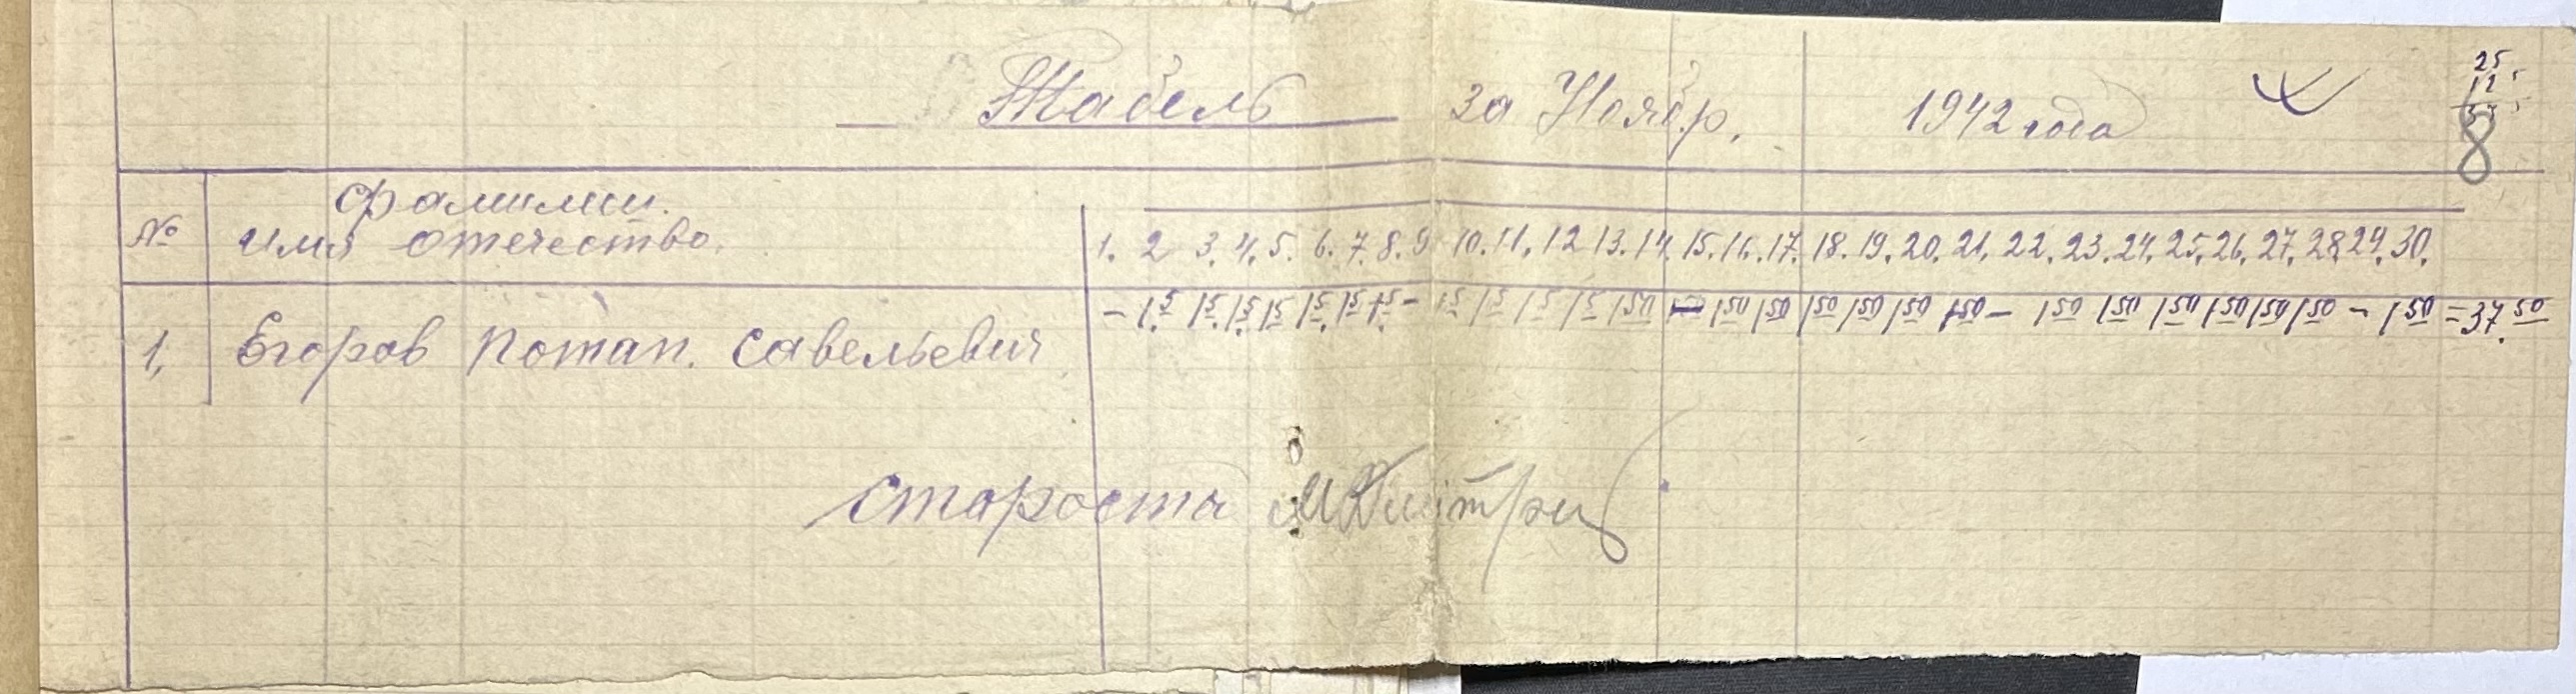 Табель за Ноябр. 1942 года
25
12 5
37 5
8
№ фамилии.
имя отечество. 1. 2 3. 4. 5. 6. 7. 8. 9 10. 11. 12 13. 14. 15. 16. 17. 18. 19. 20. 21. 22. 23. 24. 25. 26. 27. 28. 29. 30.
– 1.5 1.5 1.5 1.5 1.5 1.5 1.5 – 1.5 1.5 1.5 1.5 1 50 – 1 50 1 50 1 50 1 50 1 50 1 50 – 1 50 1 50 1 50 1 50 1 50 1 50 – 1 50 = 37.50
1, Егоров Потап. Савельевич
староста